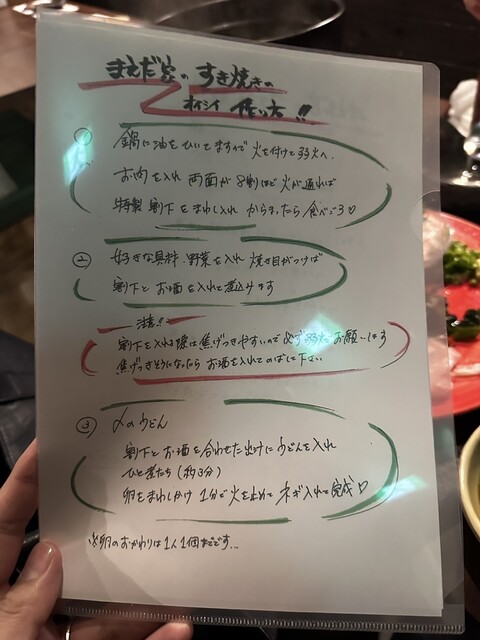 まえだ家のすき焼きの
オイシイ 作り方!!
① 鍋に油をひいてますので火を付けて弱火へ。
お肉を入れ 両面が8割ほど火が通れば
特製 割下をまわし入れ からまったら食べごろ♡
② 好きな具材・野菜を入れ 焼き目がつけば
割下とお酒を入れて煮込みます
注意!!
割下を入れる際は焦げつきやすいので必ず弱火でお願いします
焦げつきそうになったらお酒を入れてのばして下さい
③ 〆のうどん
割下とお酒を合わせた出汁にうどんを入れ
ひと煮たち(約3分)
卵をまわしかけ 1分で火を止めて ネギ入れて完成♡
※卵のおかわりは1人1個までです...